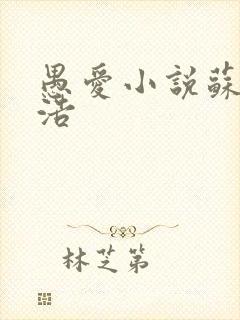 愚愛小說蘇
活
林芝第